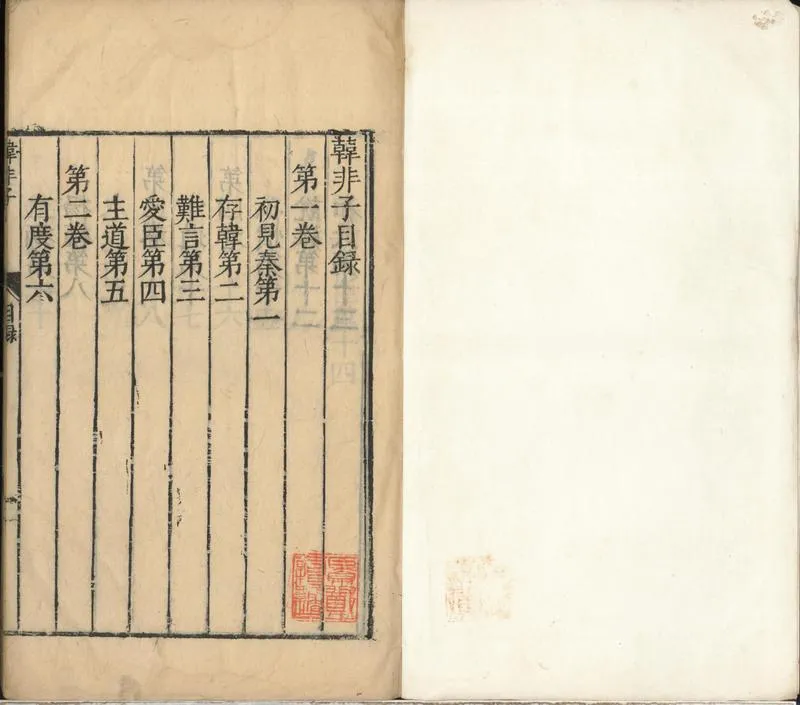 韓非子目録
第一卷
初見秦第一
存韓第二
難言第三
愛臣第四
主道第五
第二卷
有度第六
韓非子
目録
一